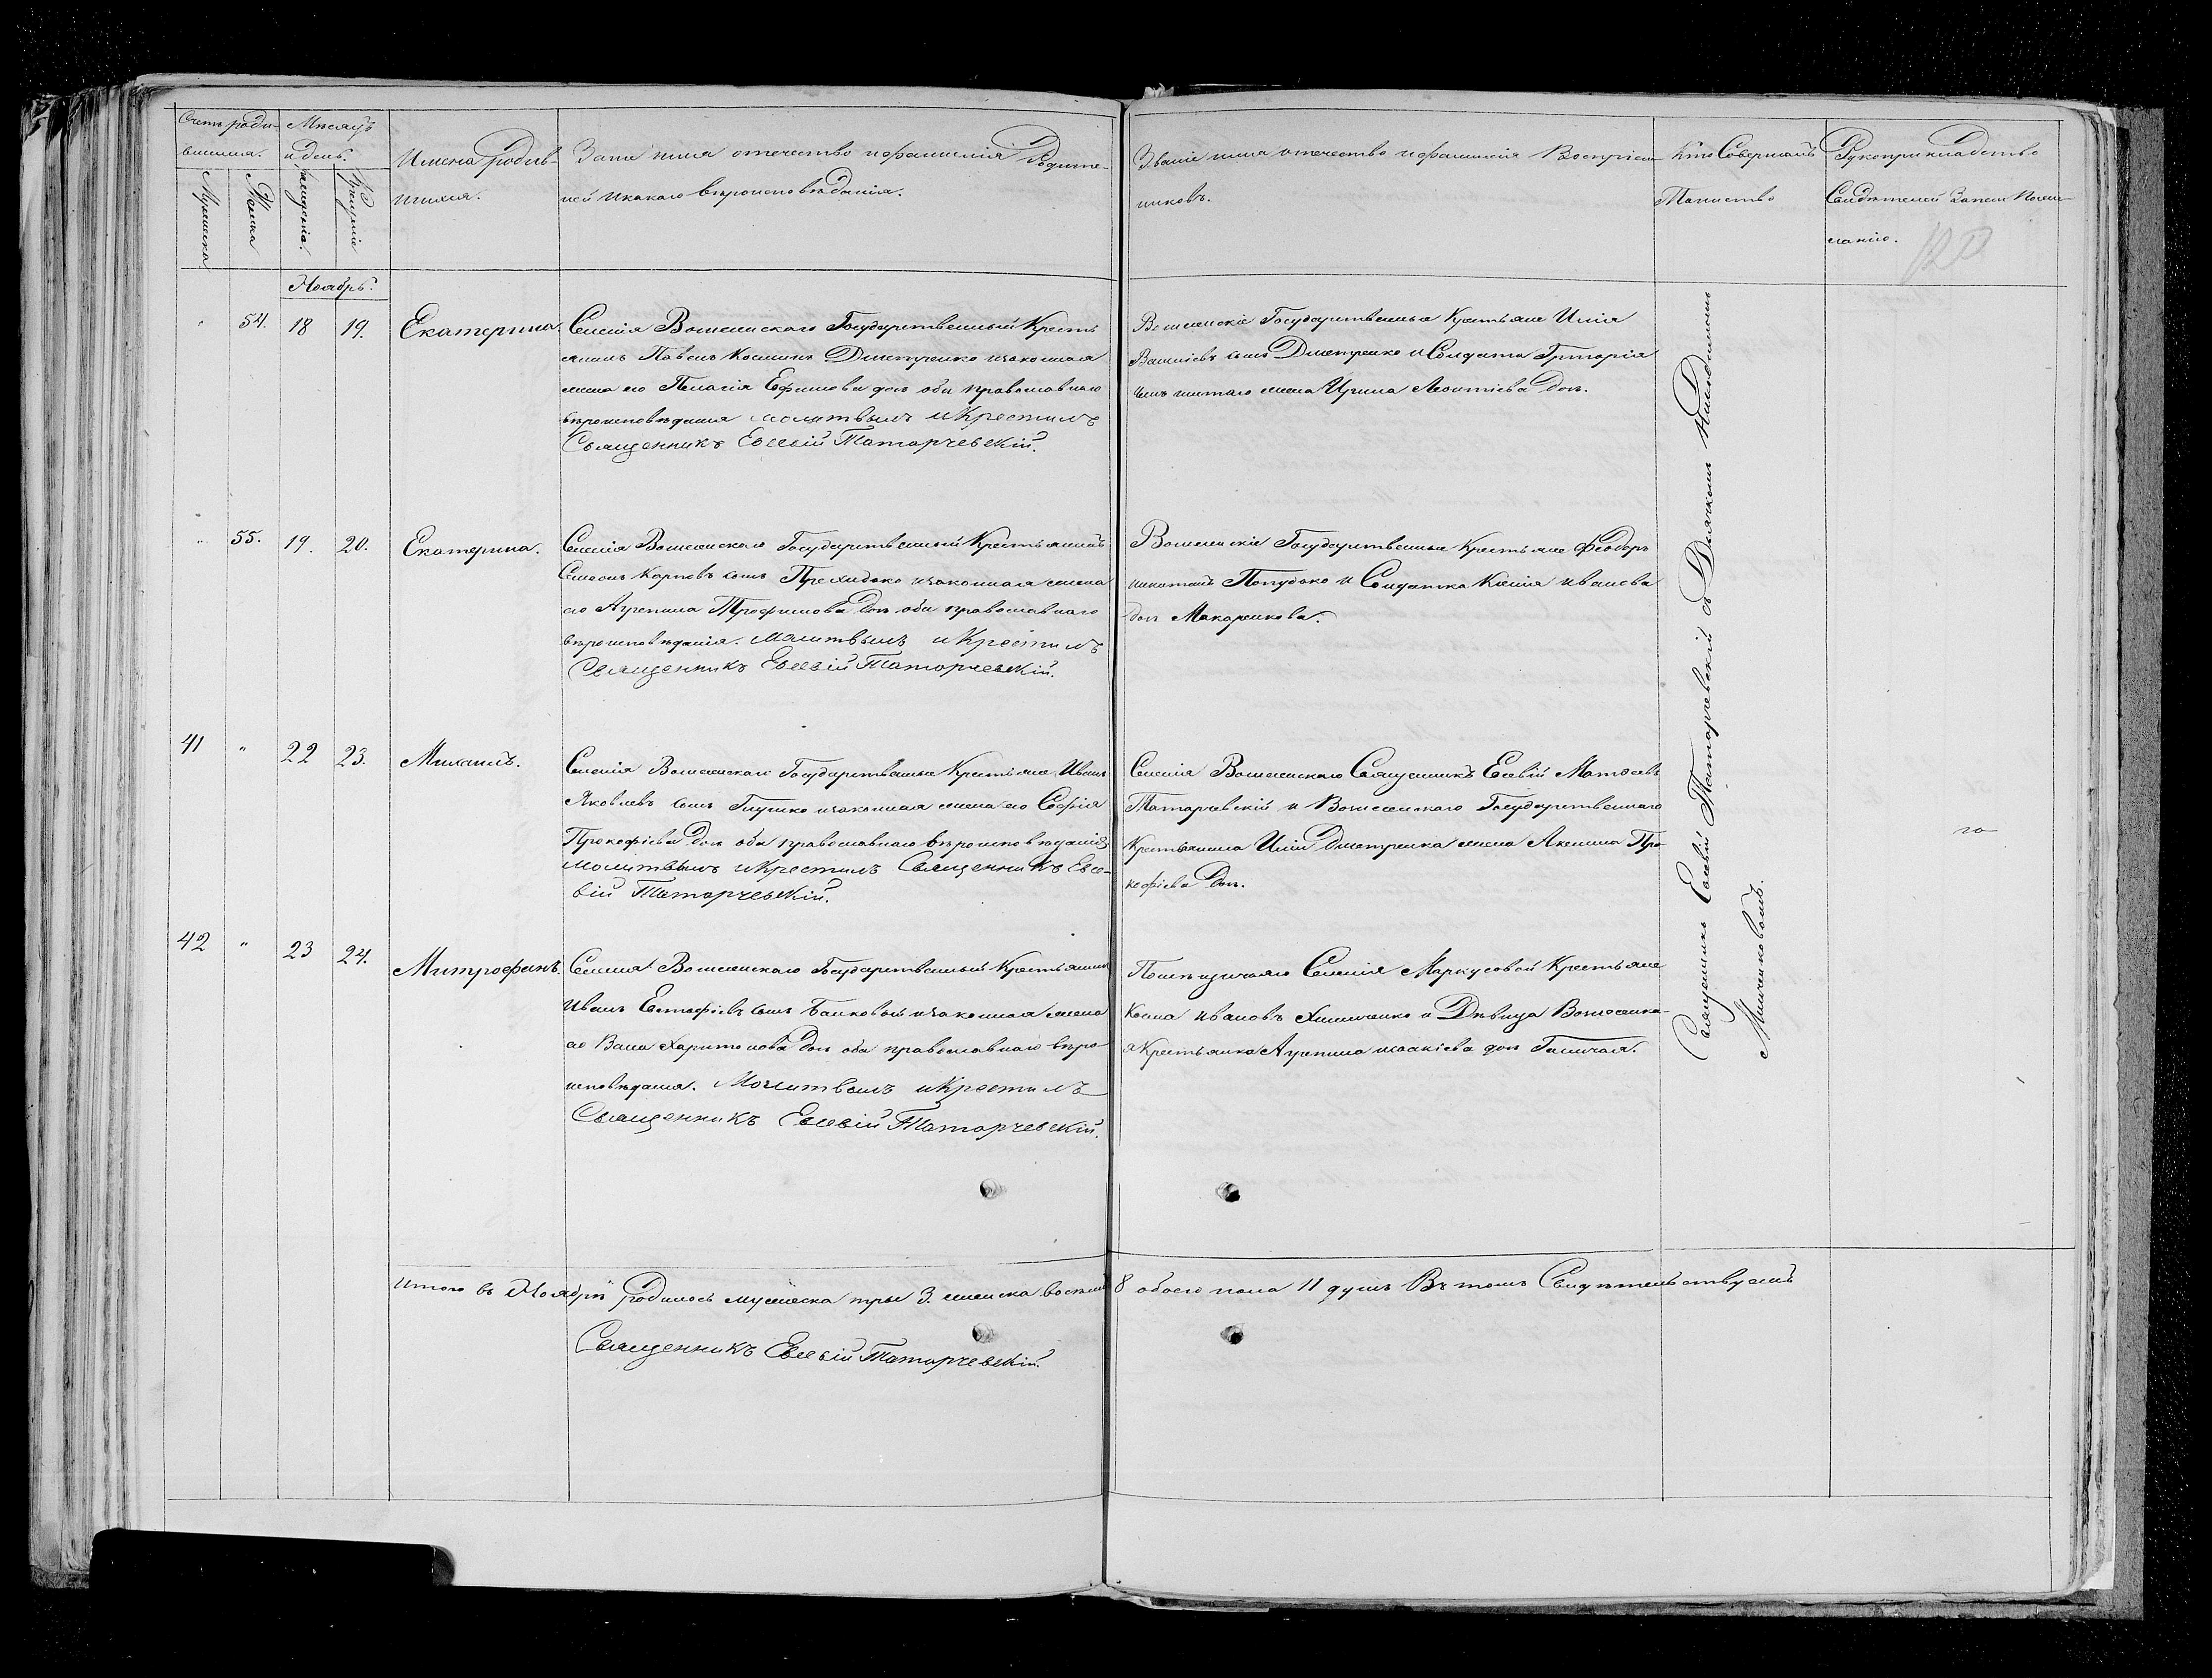 Счетъ роди-
вшихся.
Мужеска
Женска
Мѣсяцъ
и день.
рожденія.
Крещенія
Имена родив-
шихся.
Званіе имя отечество и фамилія Родите-
лей и какаго вѣроисповѣданія.
Званіе имя отечество и фамилія Воспріем-
никовъ.
Кто Совершалъ
Таинство
Рукоприкладство
Свидѣтелей Записи по жела-
ланію.
120
Ноябрь.
54. 18 19. Екатерина.
Селенія Вознесенскаго Государственный Кресть
янинъ Павелъ Косминъ Дмитренко и законная
жена его Пелагія Ефимова доч оба православнаго
вѣроисповѣданія молитвилъ и Крестилъ
Священникъ Евсевій Татарчевскій.
Вознесенскіе Государственные Крестьяне Илія
сынъ Дмитренко и Солдата Григорія
жена Ирина Леонтіева Доч.
55. 19. 20. Екатерина.
Селенія Вознесенскаго Государственный Крестьянинъ
Симеонъ Карповъ сынъ и законная жена
его Агрепина Трофимова Доч оба православнаго
вѣроисповѣданія. Молитвилъ и Крестилъ
Священникъ Евсевій Татарчевскій.
Вознесенскіе Государственные Крестьяне Феодоръ
Никитинъ и Солдатка Ксенія Иванова
доч Макаренкова.
41 " 22 23. Михаилъ.
Селенія Вознесенскаго Государственные Крестьяне Иванъ
Яковлевъ сынъ Глушко и законная жена его Софія
Прокофіева Доч оба православнаго вѣроисповѣданія
Молитвилъ и Крестилъ Священникъ Евсе-
вій Татарчевскій.
Селенія Вознесенскаго Священникъ Евсевій Матвѣевъ
Татарчевскій и Вознесенскаго Государственнаго
Крестьянина Иліи Дмитренка жена Акелина Про-
кофіева Доч.
42 " 23 24. Митрофанъ.
Селенія Вознесенскаго Государственный Крестьянинъ
Иванъ Евстафіевъ сынъ Банковый и законная жена
его Васа Харитонова доч оба православнаго вѣро-
исповѣданія. Молитвилъ и Крестилъ
Священникъ Евсевій Татарчевскій.
Селенія Маркусовой Крестьяне
Косма Ивановъ и Дѣвица Вознесенска-
я Крестьянка Агрепина доч Галичая.
Священникъ Евсевій Татарчевскій съ Дьячкомъ
Минченковомъ.
Итого въ Ноябрѣ родилось мужеска три 3. женска восемь 8 обоего пола 11 душъ Въ томъ Свидѣтельствуемъ
Священникъ Евсевій Татарчевскій.